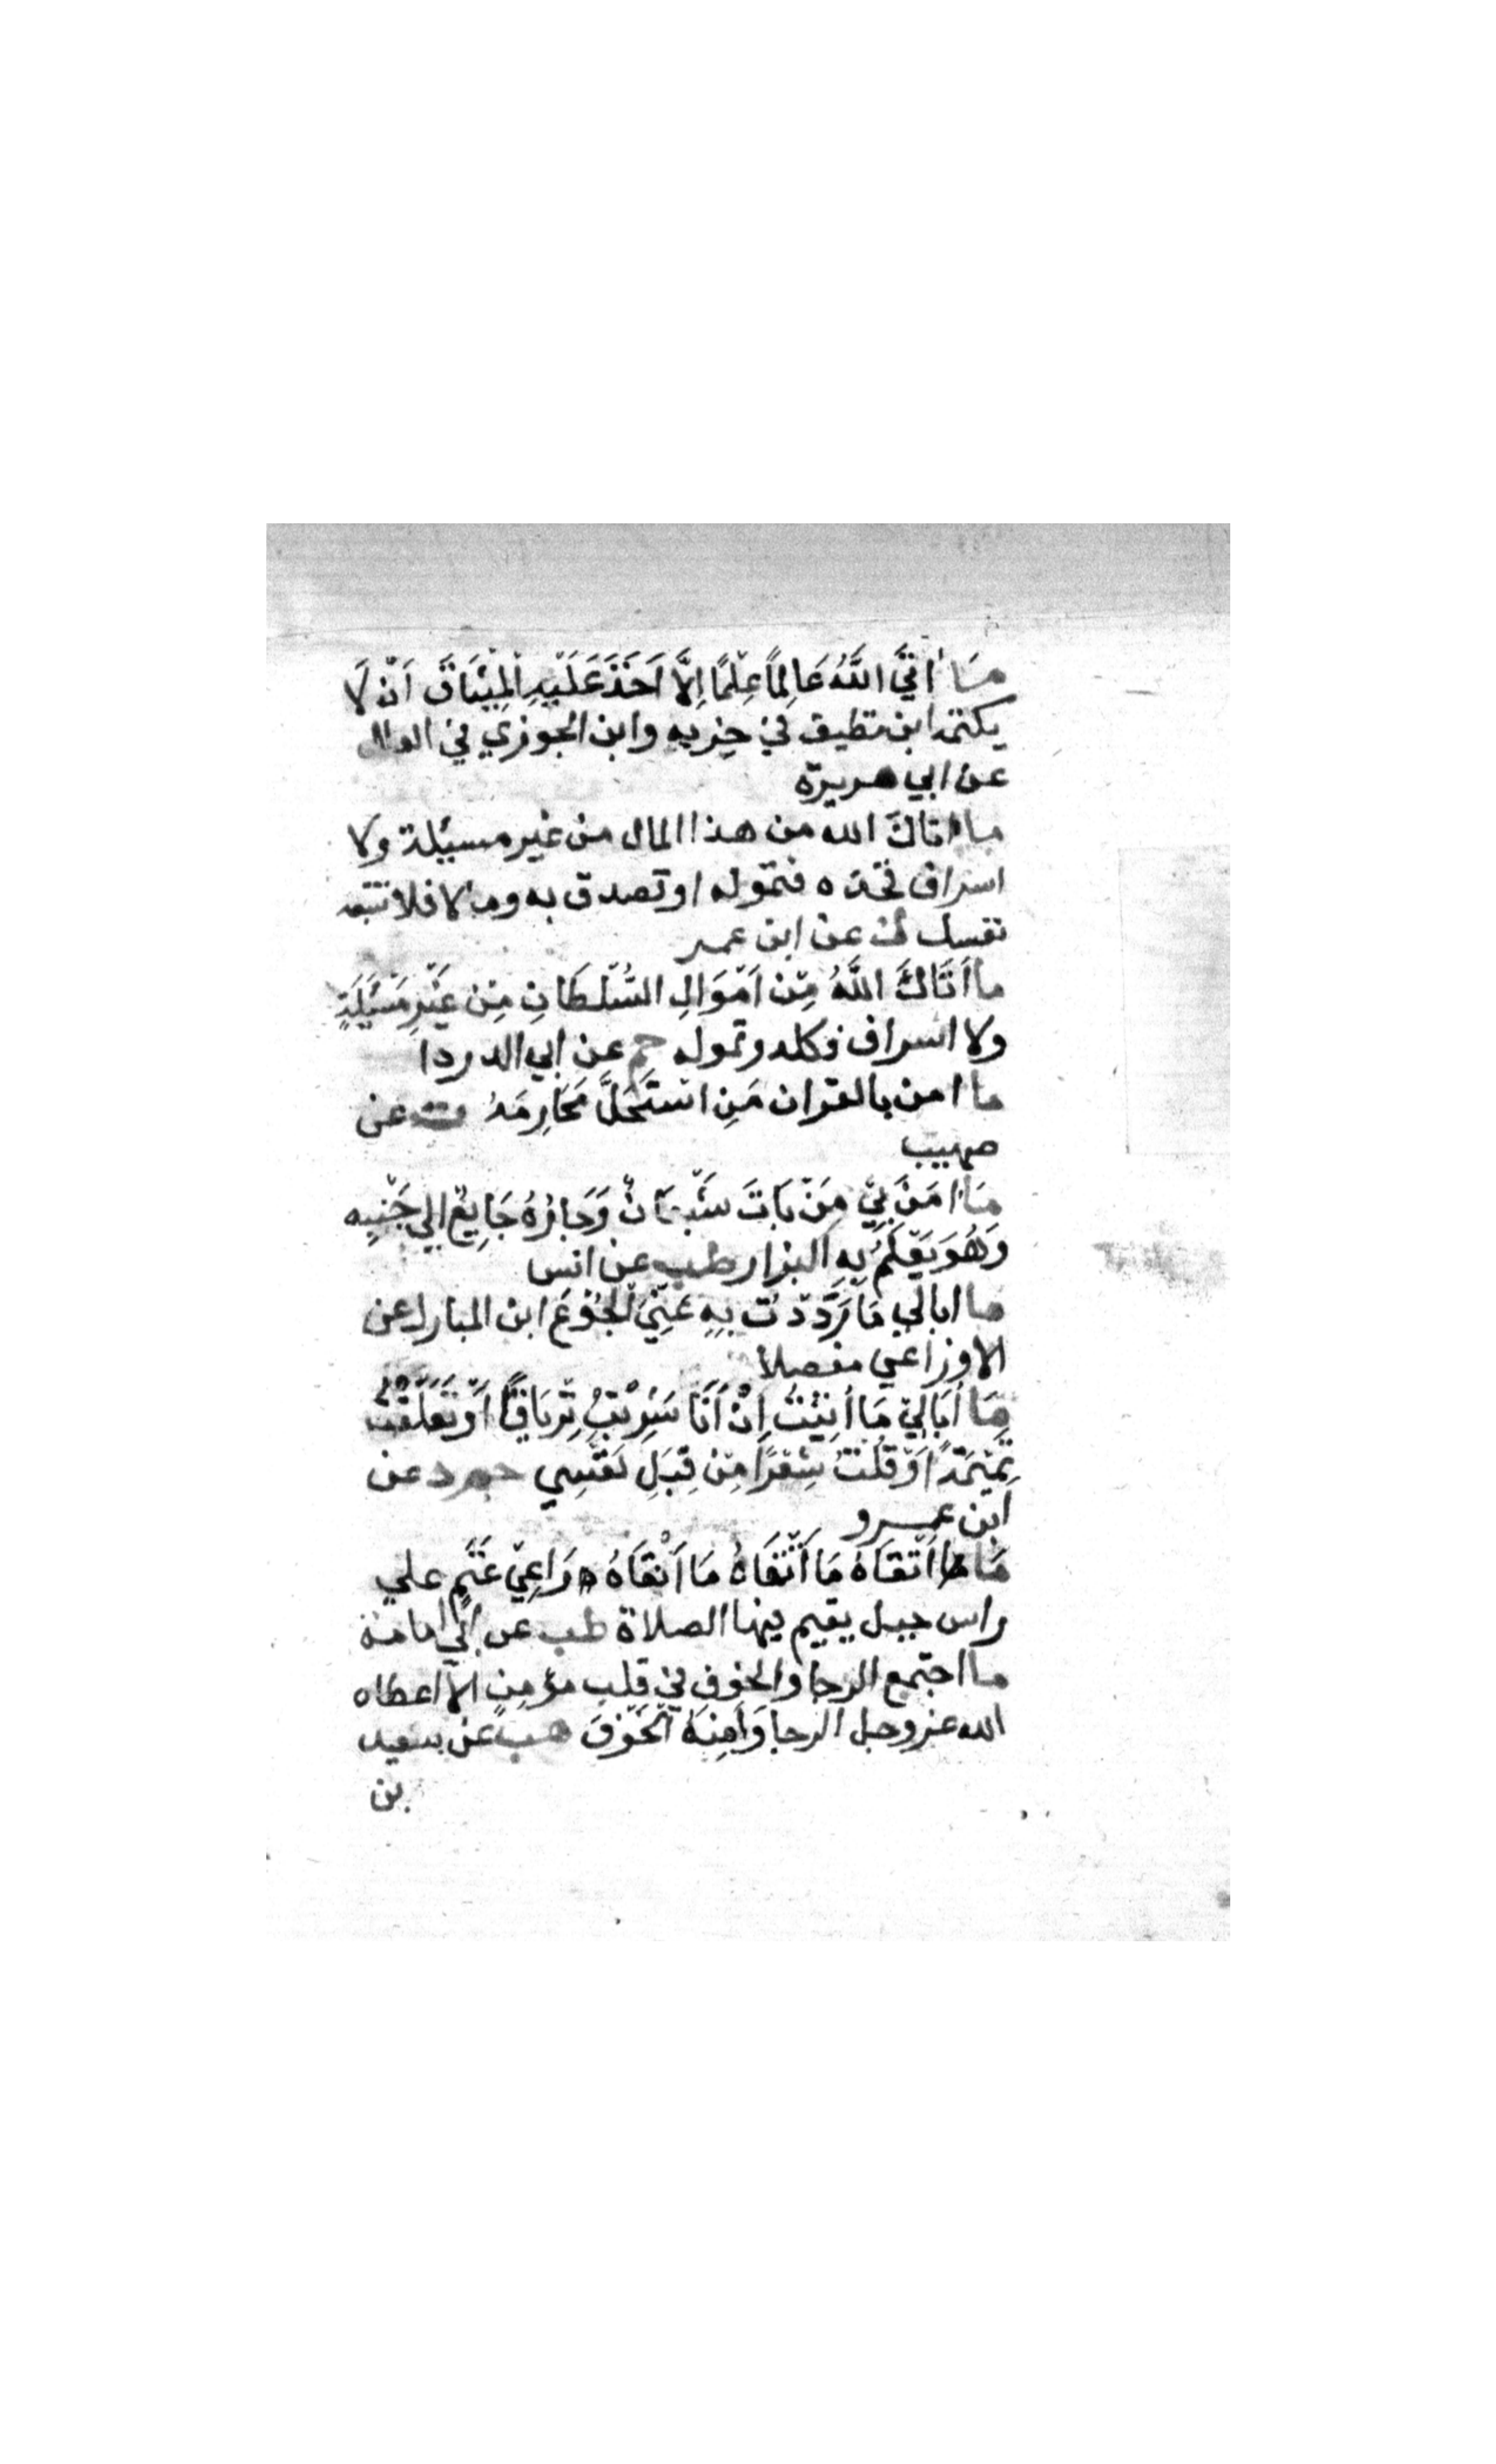 مَا اتَيَ اللَّهُ عَالِماً عِلْمًا اِلَّا اَخَذَ عَلَيْهِ الْمِيْثَاقَ اَنْ لَا
يكتمه ابن نظيف في جزيه وابن الجوزي في العلل
عن ابي هريرة
ما اتاك الله من هذا المال من غير مسيلة ولا
اسراف فخذه فتموله او تصدق به وما لا فلا تتبعه
نفسك ن عن ابن عمر
ما اَتَاكَ اللَّهُ مِنْ اَمْوَالِ السُّلْطَانِ مِنْ غَيْرِ مَسْيَلَةٍ
ولا اسراف فكله وتموله حم عن ابي الدردا
ما امن بالقران مَنِ اسْتَحَلَّ مَحَارِمَهُ ت عن
صهيب
مَا امَنَ بِيْ مَنْ بَاتَ شَبْعَانُ وَجَارُهُ جَايِعٌ الي جَنْبِه
وَهُوَ يَعْلَمُ بِهِ البزار طب عن انس
ما ابالي مَا رَدَّدْتُ بِهِ عَنِّيَ الْجُوْعَ ابن المبارك عن
الاوزاعي معضلا
مَا اُبَالِيْ مَا اُتِيْتُ اِنْ اَنَا شَرِبْتُ تِرْيَاقًا اَوْ تَعَلَّقْتُ
تَمِيْمَةً اَوْ قُلْتُ شِعْرًا مِنْ قِبَلِ نَفْسِي حم د عن
ابن عمرو
مَا اَتْقَاهُ مَا اَتْقَاهُ مَا اَتْقَاهُ رَاعِيْ غَنَمٍ علي
راس جبل يقيم فيها الصلاة طب عن ابي امامة
ما اجتمع الرجا والخوف في قلب مؤمن الا اعطاه
الله عز وجل الرجا وَاَمِنَهُ الْخَوْفَ هب عن سعيد
بن